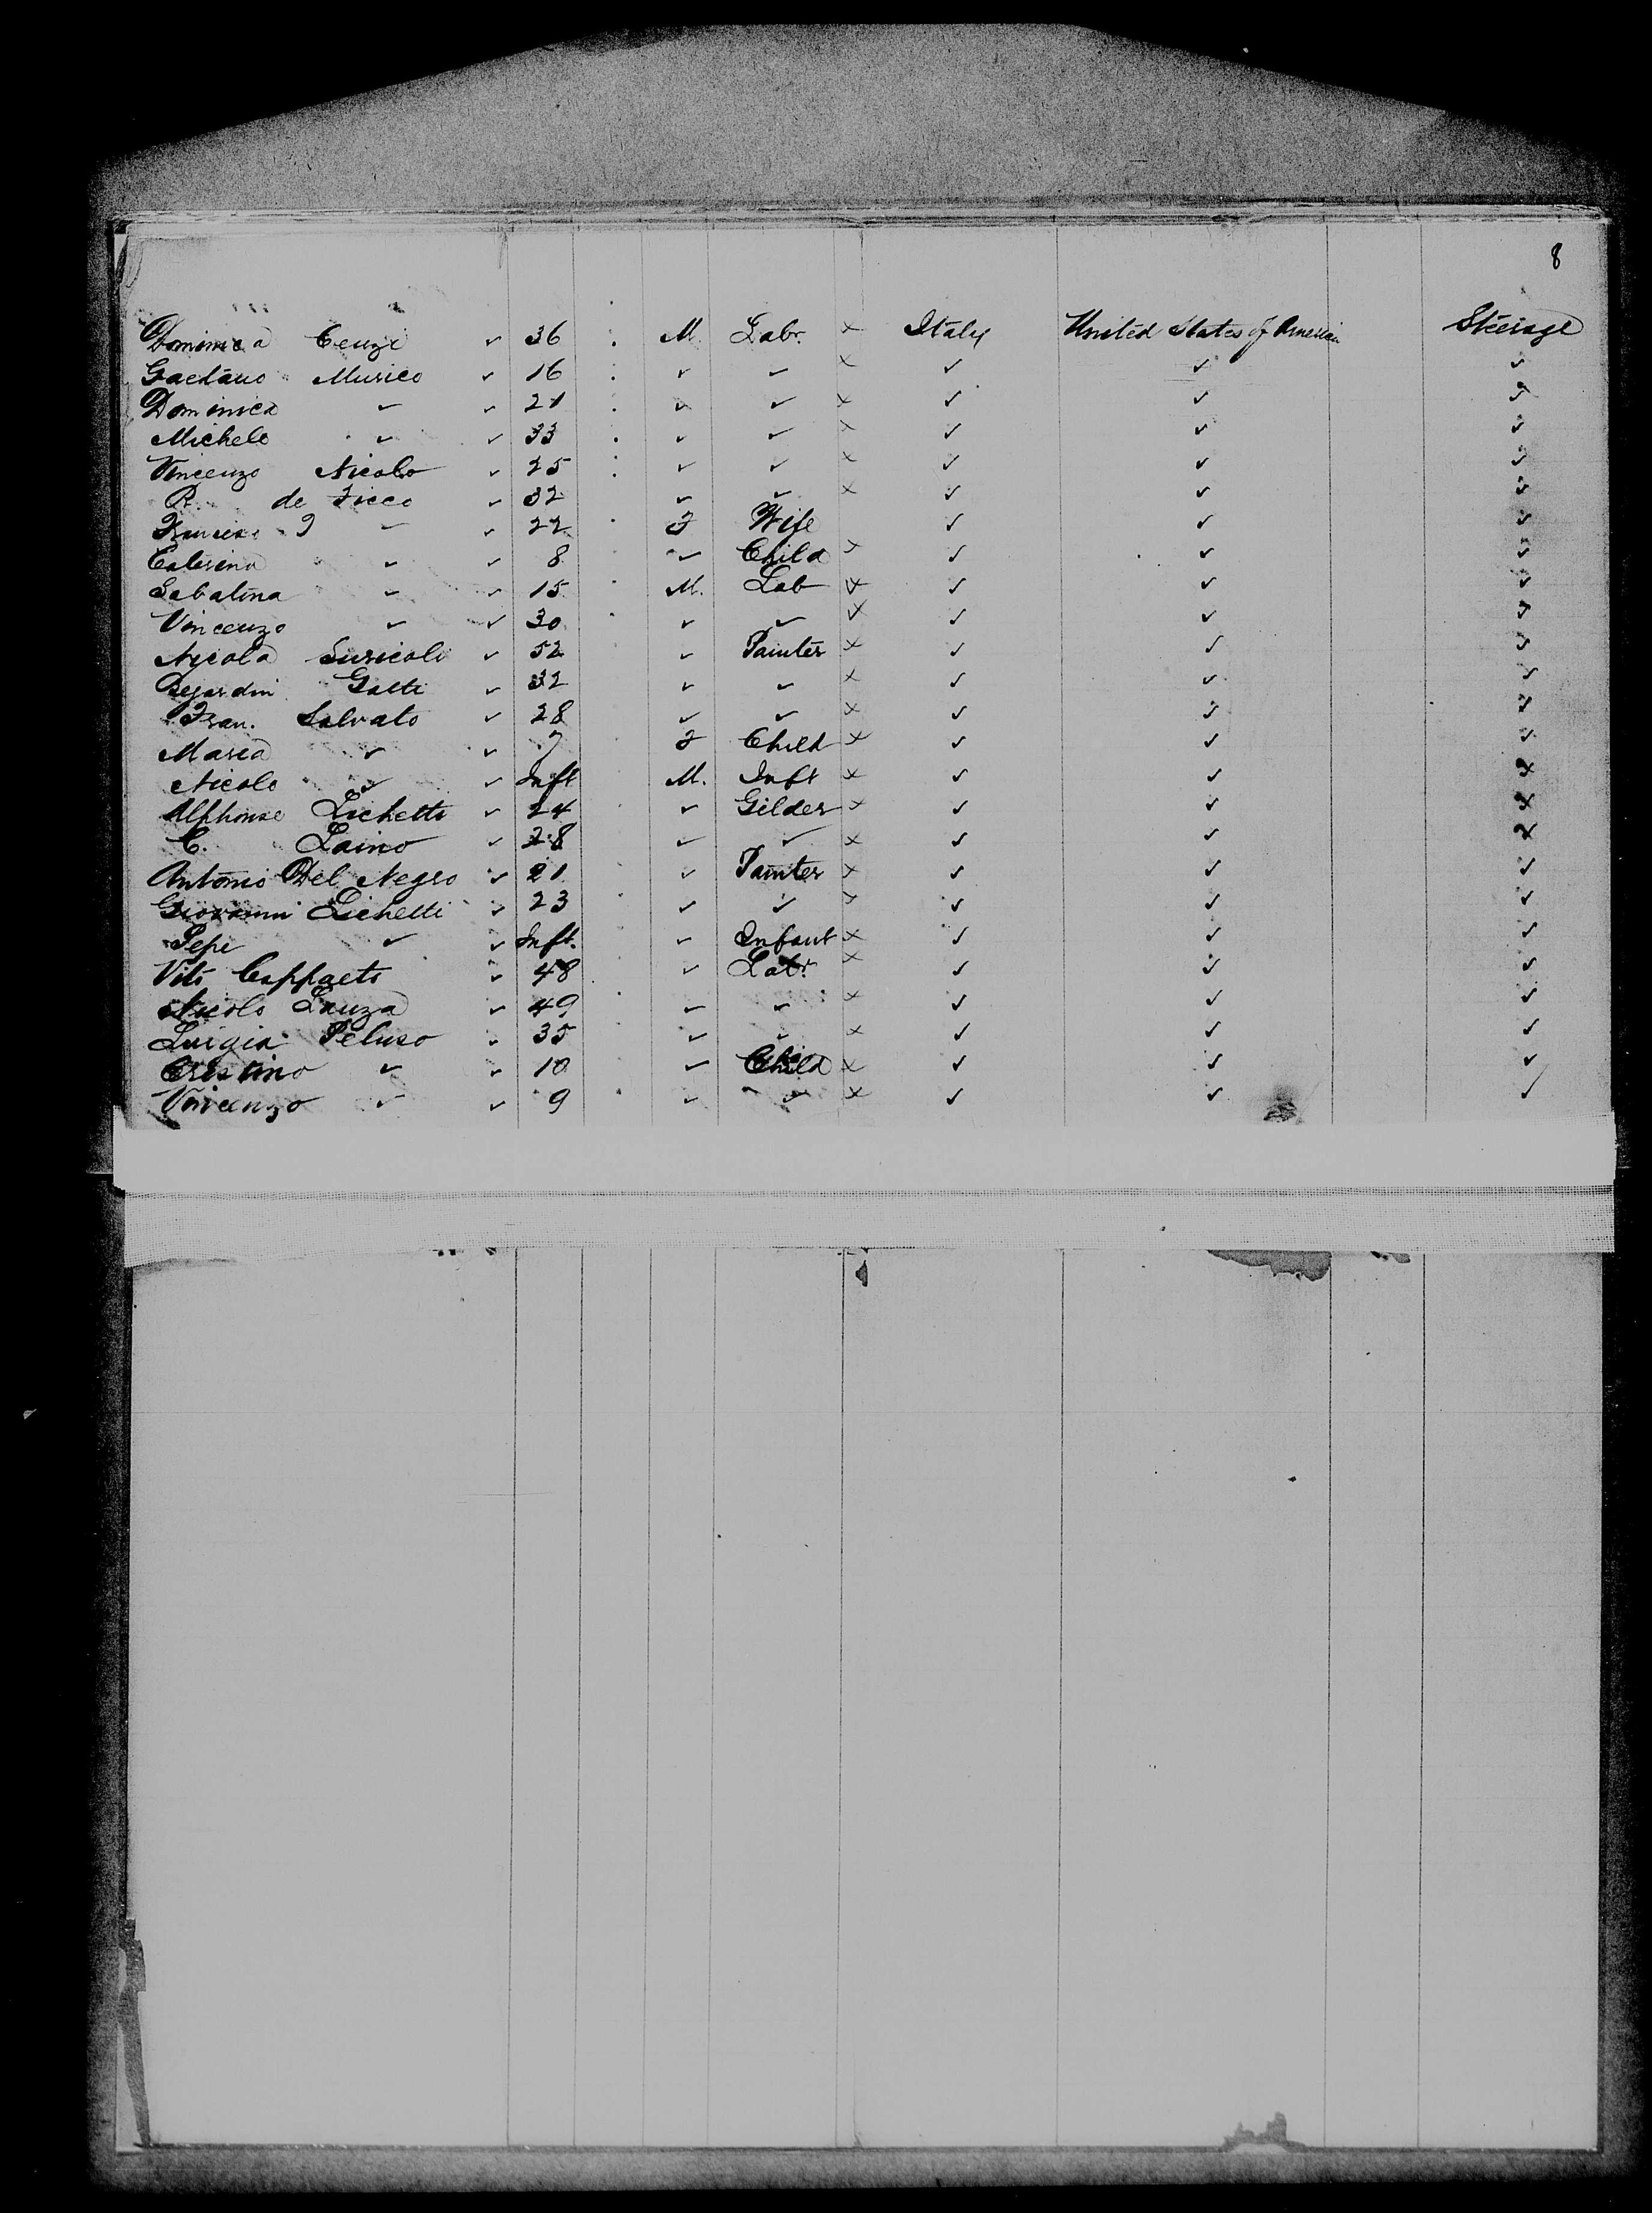 8
Dominica Cenzi ✓ 36 M. Labr. × Italy United States of America Steerage
Gaetano Musico ✓ 16 ✓ ✓ × ✓ ✓ ✓
Dominica ✓ ✓ 21 ✓ ✓ × ✓ ✓ ✓
Michele ✓ ✓ 33 ✓ ✓ × ✓ ✓ ✓
Vincenzo Nicolo ✓ 25 ✓ ✓ × ✓ ✓ ✓
R. de Ficco ✓ 32 ✓ ✓ × ✓ ✓ ✓
✓ ✓ 22 F Wife ✓ ✓ ✓
Caterina ✓ ✓ 8 ✓ Child × ✓ ✓ ✓
Sabatina ✓ ✓ 15 M. Lab × ✓ ✓ ✓
Vincenzo ✓ ✓ 30 ✓ ✓ × ✓ ✓ ✓
Nicola Suricoli ✓ 52 ✓ Painter × ✓ ✓ ✓
Gatti ✓ 32 ✓ ✓ × ✓ ✓ ✓
Fran. Salvato ✓ 28 ✓ ✓ × ✓ ✓ ✓
Maria ✓ ✓ 7 F Child × ✓ ✓ ✓
Nicolo ✓ ✓ Inft M. Inft × ✓ ✓ ✓
Alphonse Lichetti ✓ 24 ✓ Gilder × ✓ ✓ ✓
C. Laino ✓ 28 ✓ ✓ × ✓ ✓ ✓
Antonio Del Negro ✓ 21 ✓ Painter × ✓ ✓ ✓
Giovanni Lichetti ✓ 23 ✓ ✓ × ✓ ✓ ✓
Pepe ✓ ✓ Inft. ✓ Infant × ✓ ✓ ✓
Vito Cappaeto ✓ 48 ✓ Labr. × ✓ ✓ ✓
Nicolo Lauza ✓ 49 ✓ ✓ × ✓ ✓ ✓
Luigia Peluso ✓ 35 ✓ ✓ × ✓ ✓ ✓
Cristino ✓ ✓ 10 ✓ Child × ✓ ✓ ✓
Vincenzo ✓ ✓ 9 ✓ ✓ × ✓ ✓ ✓